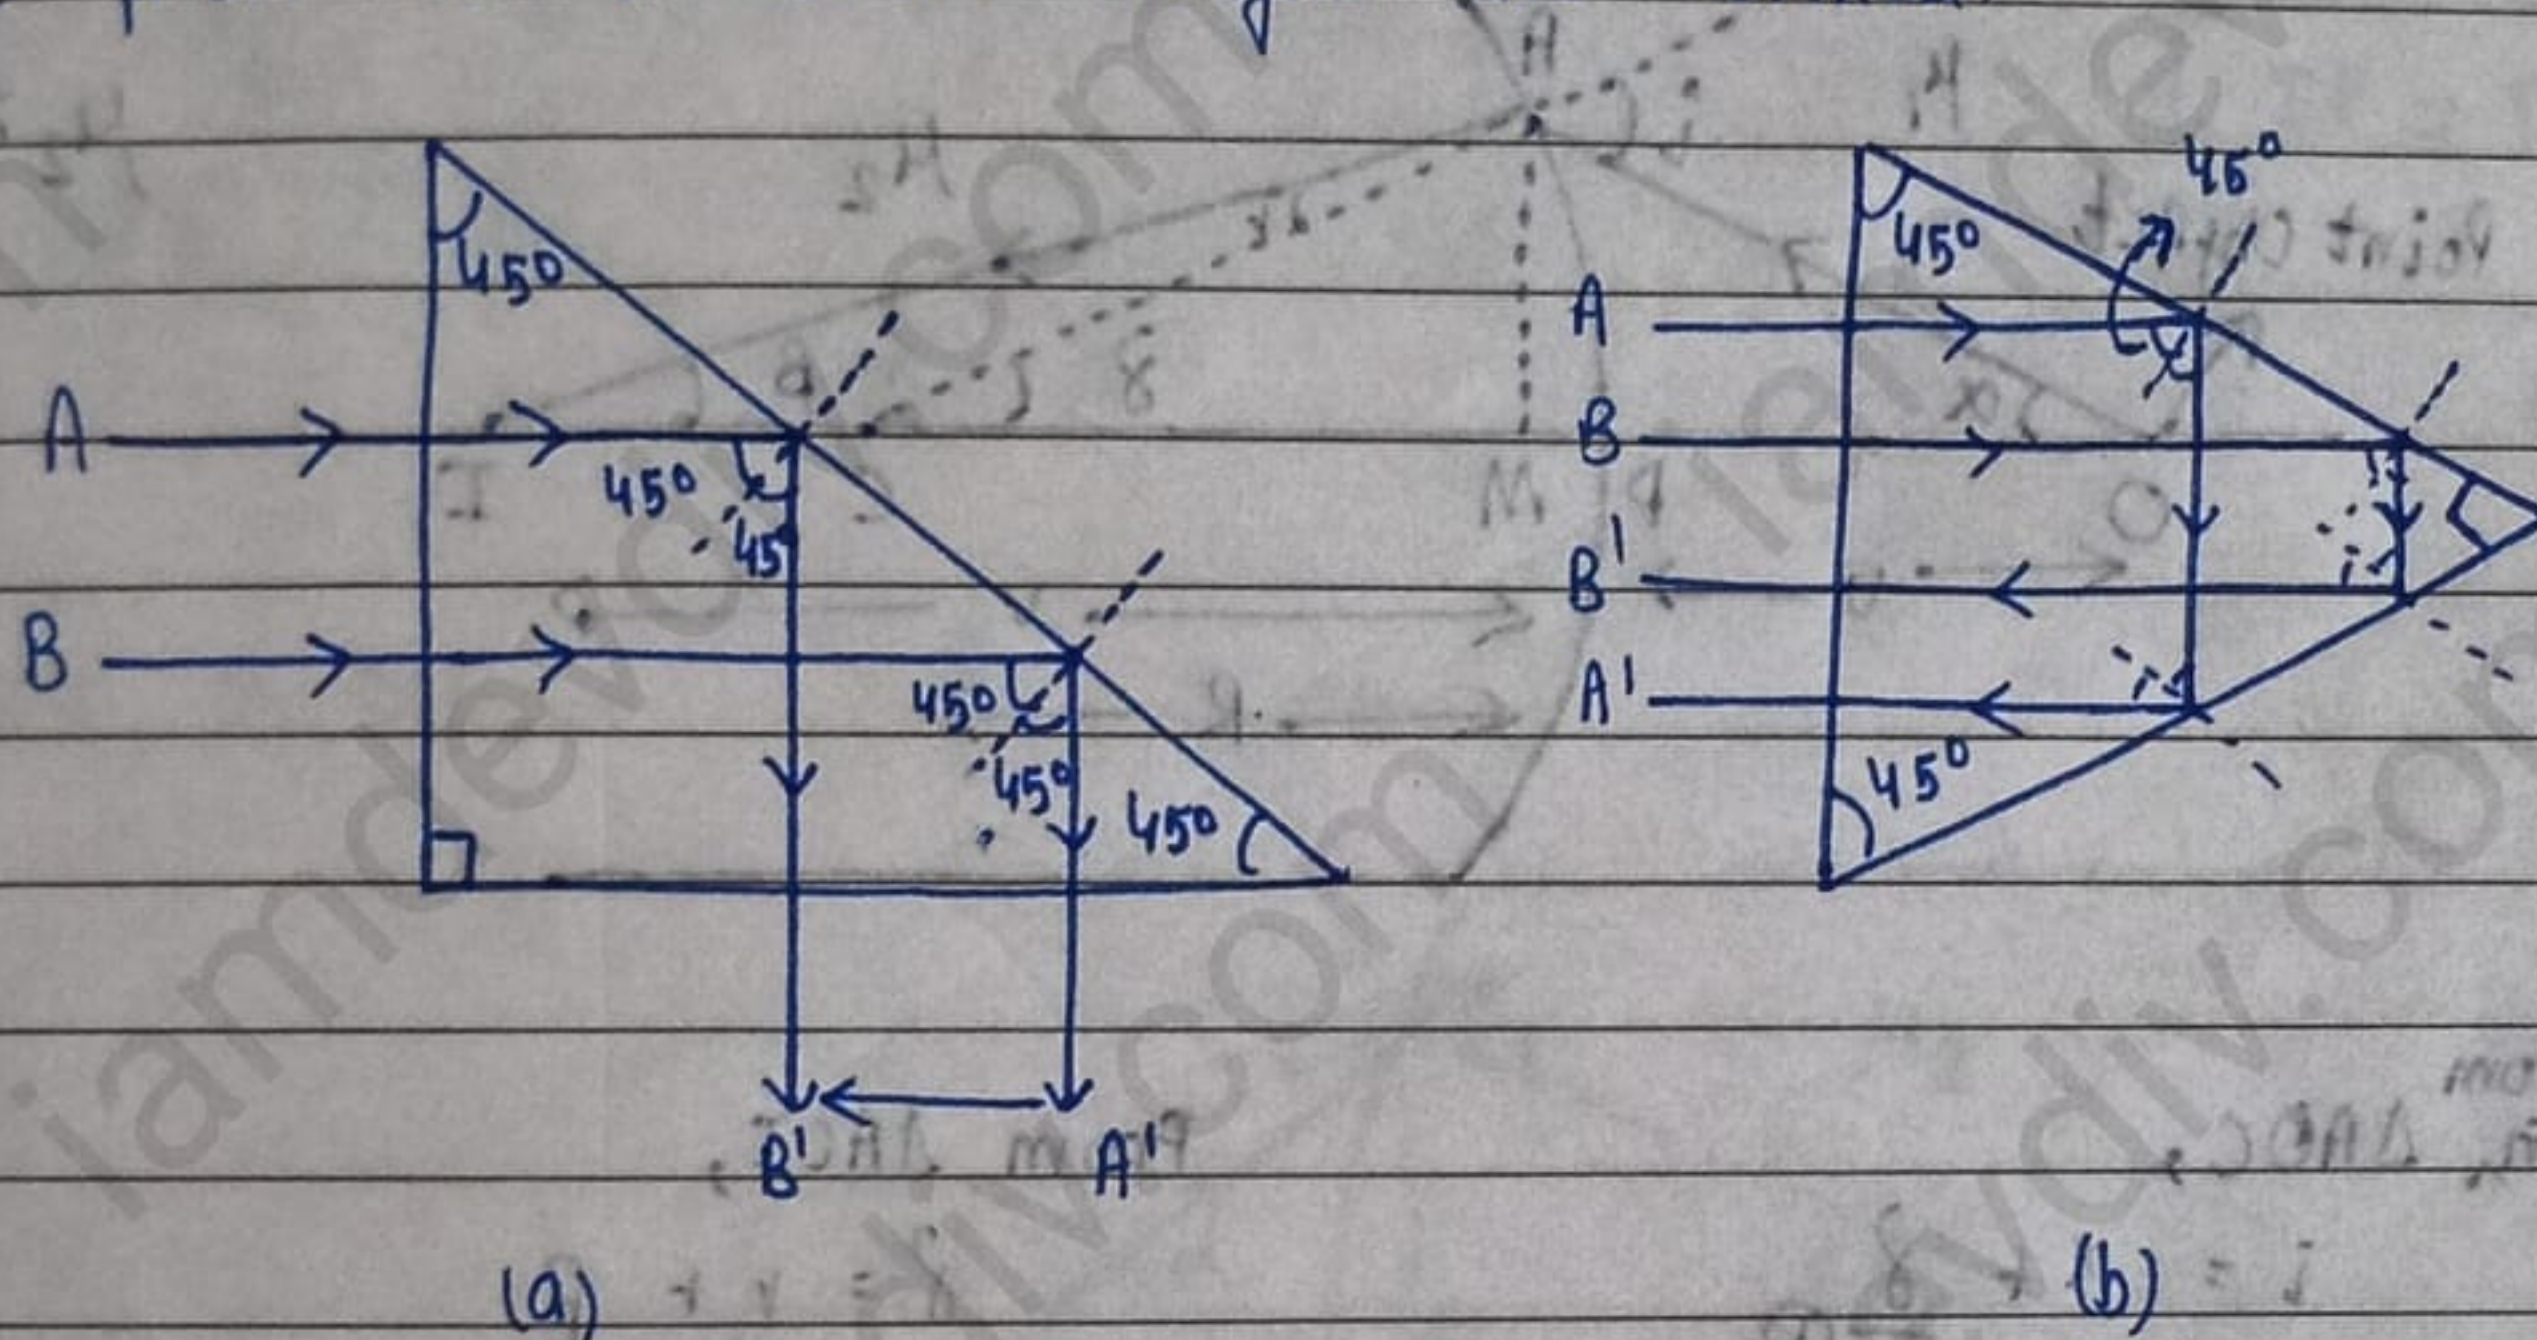 45°
A
45°
45°
B
45°
45°
45°
B' A'
(a)
45°
45°
A
B
B'
A'
45°
i
r
(b)
iamdevdiv.com